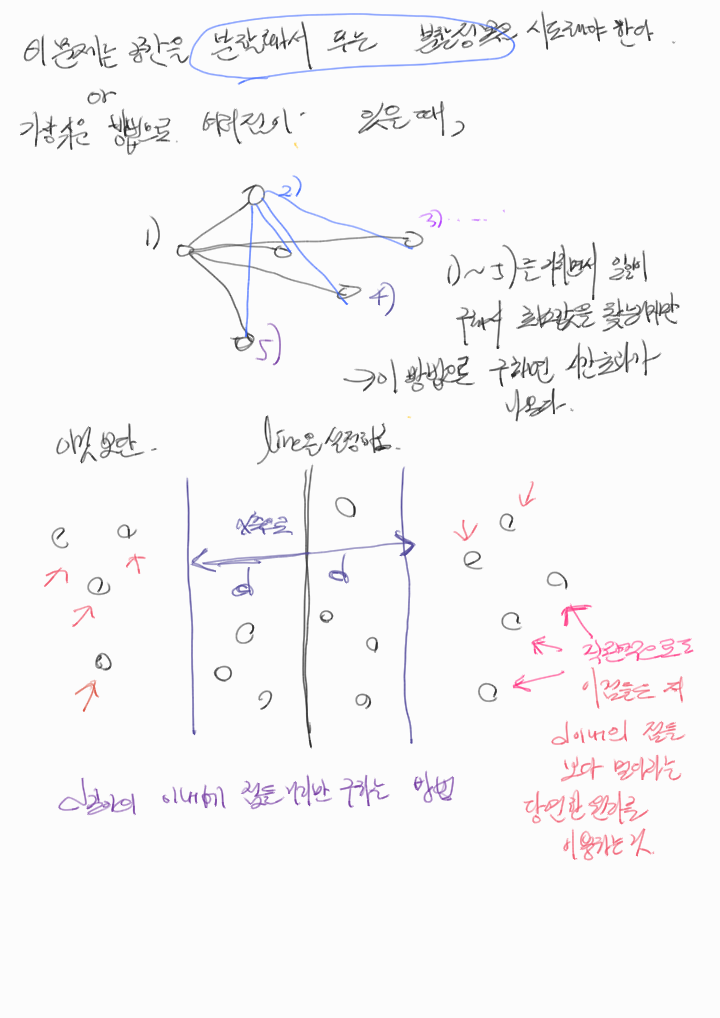 이 문제는 공간을 분할해서 푸는 분할정복을 시도해야 한다.
or
가장 쉬운 방법으로 여러점이 있을 때,
1)
2)
3)
4)
5)
1) ~ 5)를 거치면서 일일이
구해서 최소값을 찾는다지만
→이 방법으로 구하면 시간초과가
나온다.
이것 보단. line을 설정하고.
x축으로
d d
직관적으로도
이점들은 저
d이내의 점들
보다 멀다라는
당연한 원리를
이용하는 것.
d길이의 이내에 점들 끼리만 구하는 방법